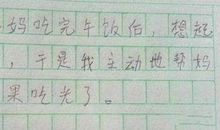 妈吃完午饭后，想起
，于是我主动地帮妈
果吃光了。